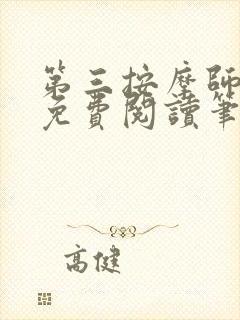 第三按摩師
免費閱讀筆
高健